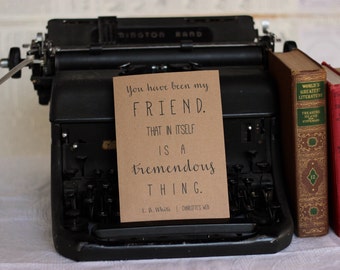 REMINGTON RAND
You have been my
FRIEND.
THAT IN ITSELF
IS A
tremendous
THING.
E. B. WHITE | CHARLOTTE'S WEB
WORLD'S
GREATEST
LITERATURE